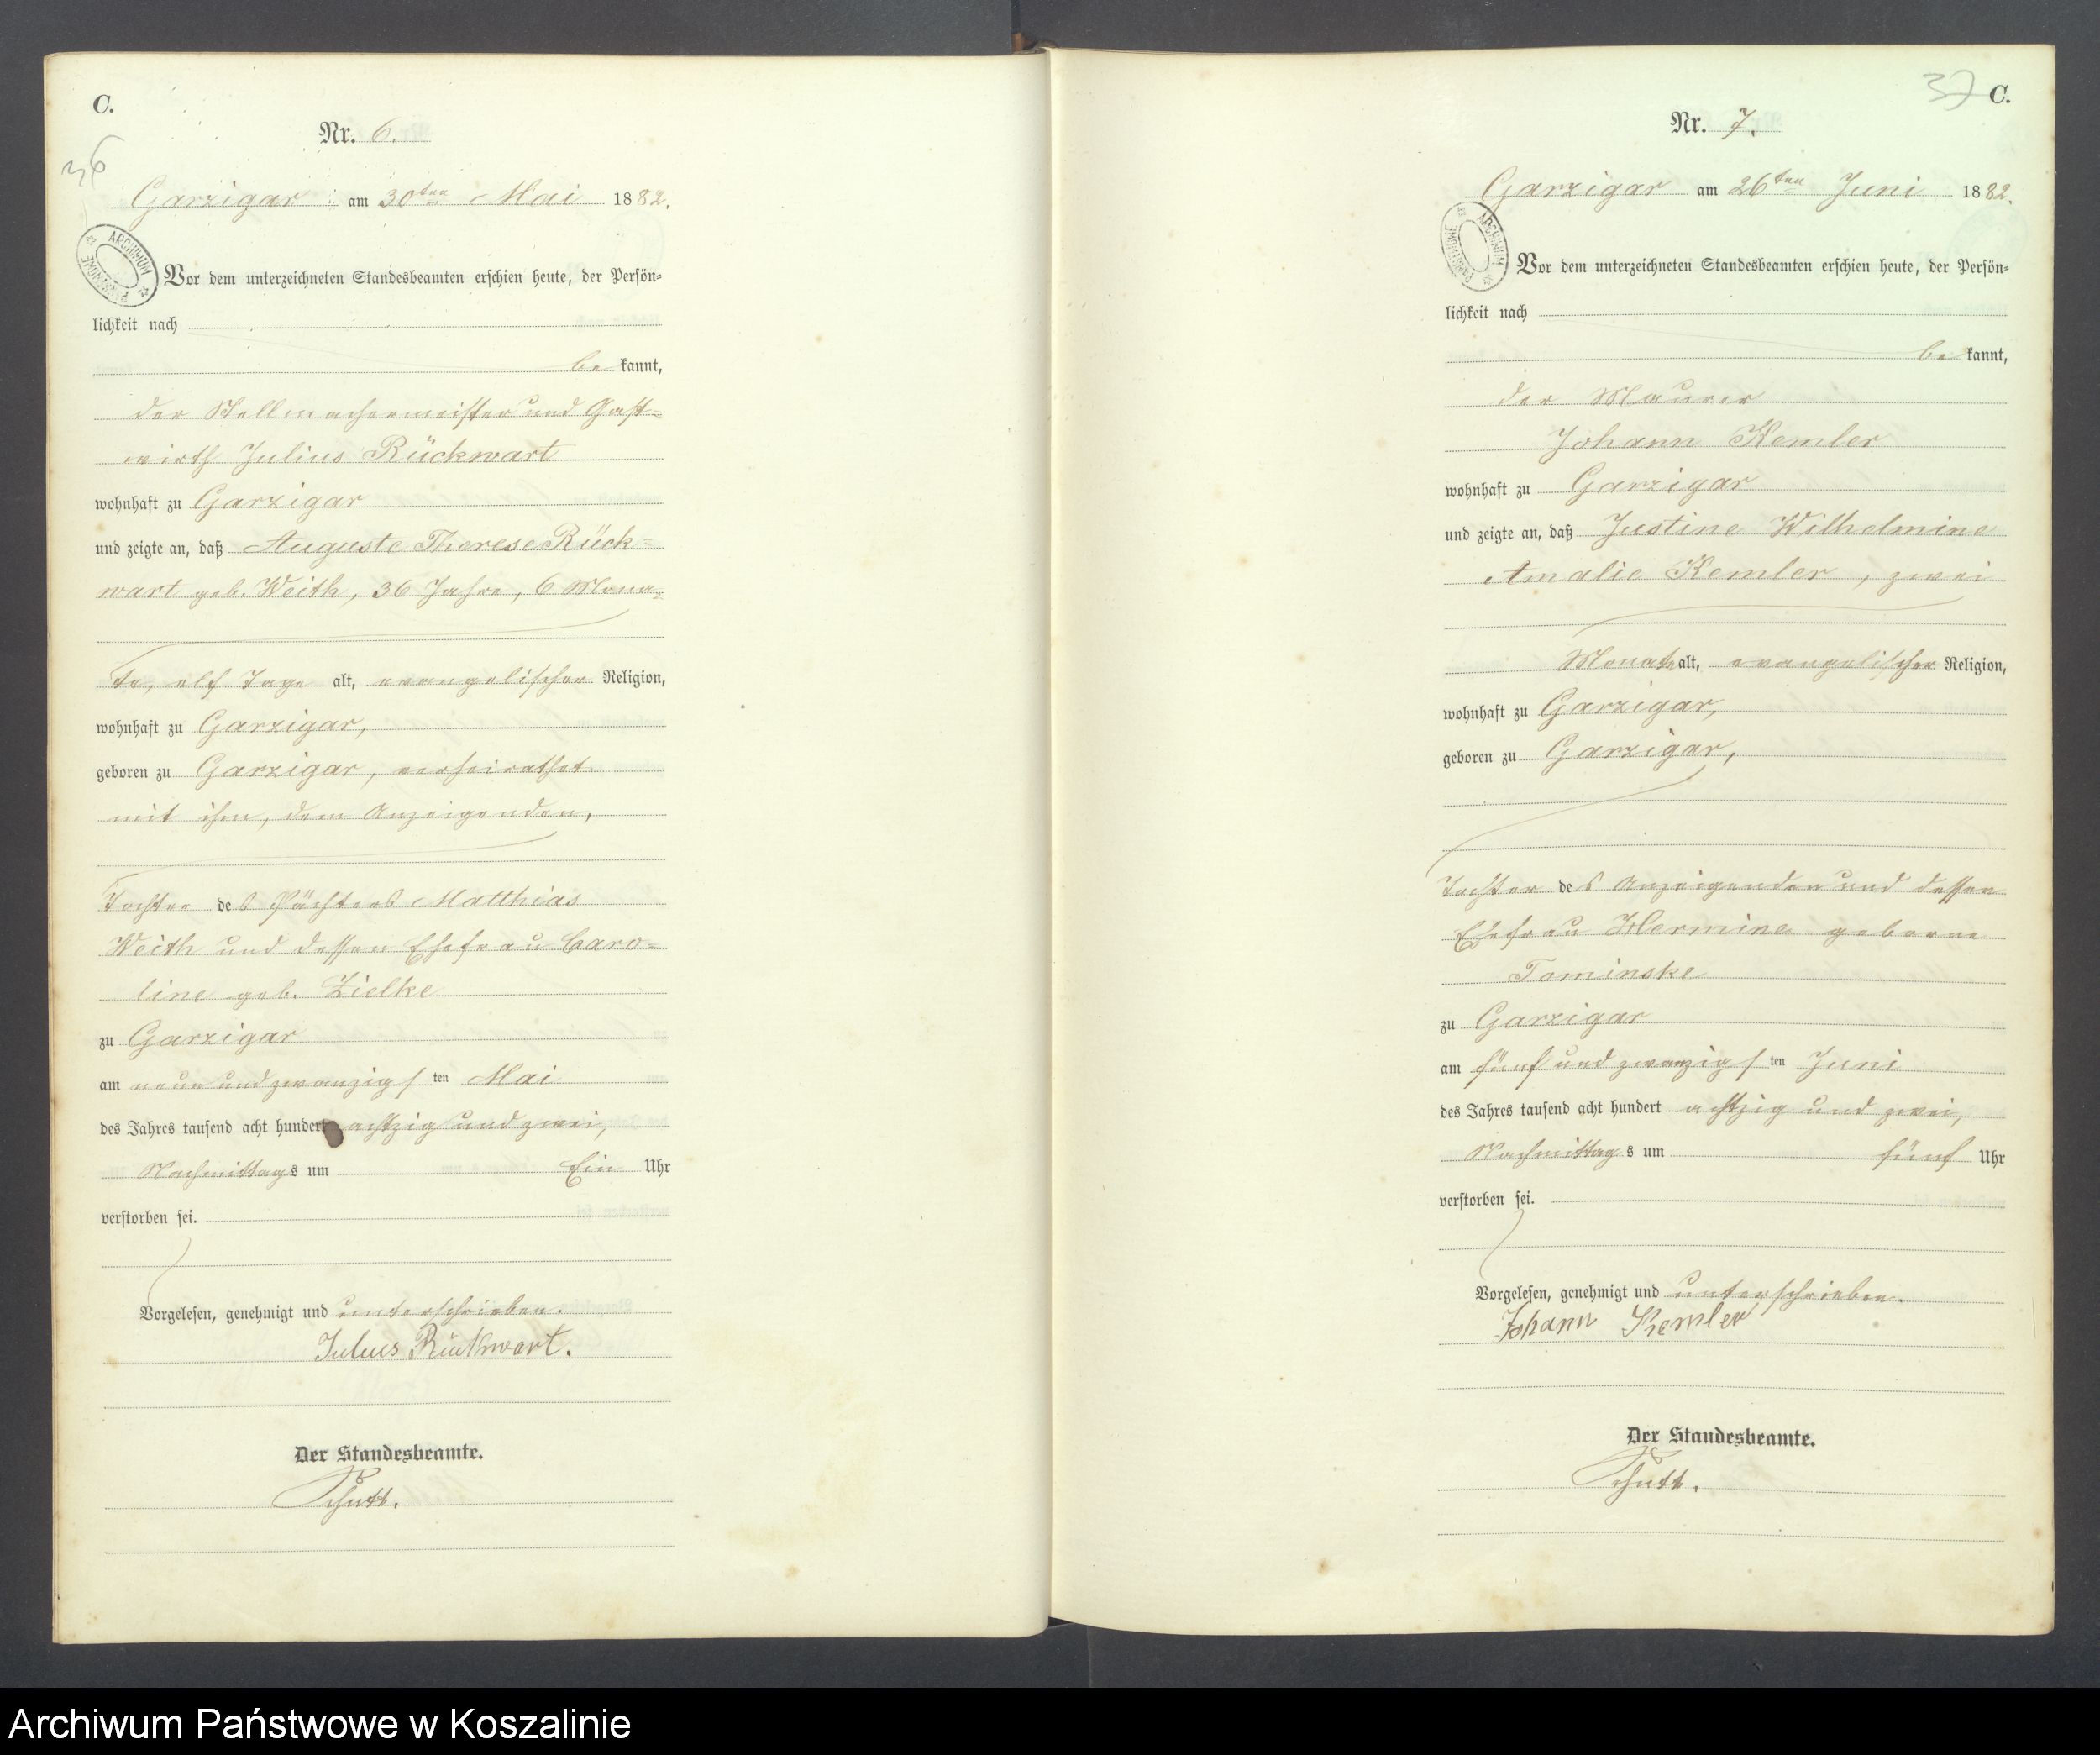 C.
36
Nr. 6.
Garzigar am 30ten Mai 1882.
ARCHIWUM PAŃSTWOWE
Vor dem unterzeichneten Standesbeamten erschien heute, der Persön-
lichkeit nach
be kannt,
der Stellmachermeister und Gast-
wirth Julius Rückwart
wohnhaft zu Garzigar
und zeigte an, daß Auguste Therese Rück-
wart geb. Weith, 36 Jahre, 6 Mona-
te, elf Tage alt, evangelischer Religion,
wohnhaft zu Garzigar,
geboren zu Garzigar, verheirathet
mit ihm, dem Anzeigenden,
Tochter des Pächters Matthias
Weith und dessen Ehefrau Caro-
line geb. Zielke
zu Garzigar
am neunundzwanzigsten Mai
des Jahres tausend acht hundert achtzig und zwei,
Nachmittags um Ein Uhr
verstorben sei.
Vorgelesen, genehmigt und unterschrieben.
Julius Rückwart.
Der Standesbeamte.
Schutt.
37 C.
Nr. 7.
Garzigar am 26ten Juni 1882.
ARCHIWUM PAŃSTWOWE
Vor dem unterzeichneten Standesbeamten erschien heute, der Persön-
lichkeit nach
be kannt,
der Maurer
Johann Kemler
wohnhaft zu Garzigar
und zeigte an, daß Justine Wilhelmine
Amalie Kemler, zwei
Monate alt, evangelischer Religion,
wohnhaft zu Garzigar,
geboren zu Garzigar,
Tochter des Anzeigenden und dessen
Ehefrau Hermine geborne
Tominske
zu Garzigar
am fünf und zwanzigsten Juni
des Jahres tausend acht hundert achtzig und zwei,
Nachmittags um fünf Uhr
verstorben sei.
Vorgelesen, genehmigt und unterschrieben.
Johann Kemler
Der Standesbeamte.
Schutt.
Archiwum Państwowe w Koszalinie